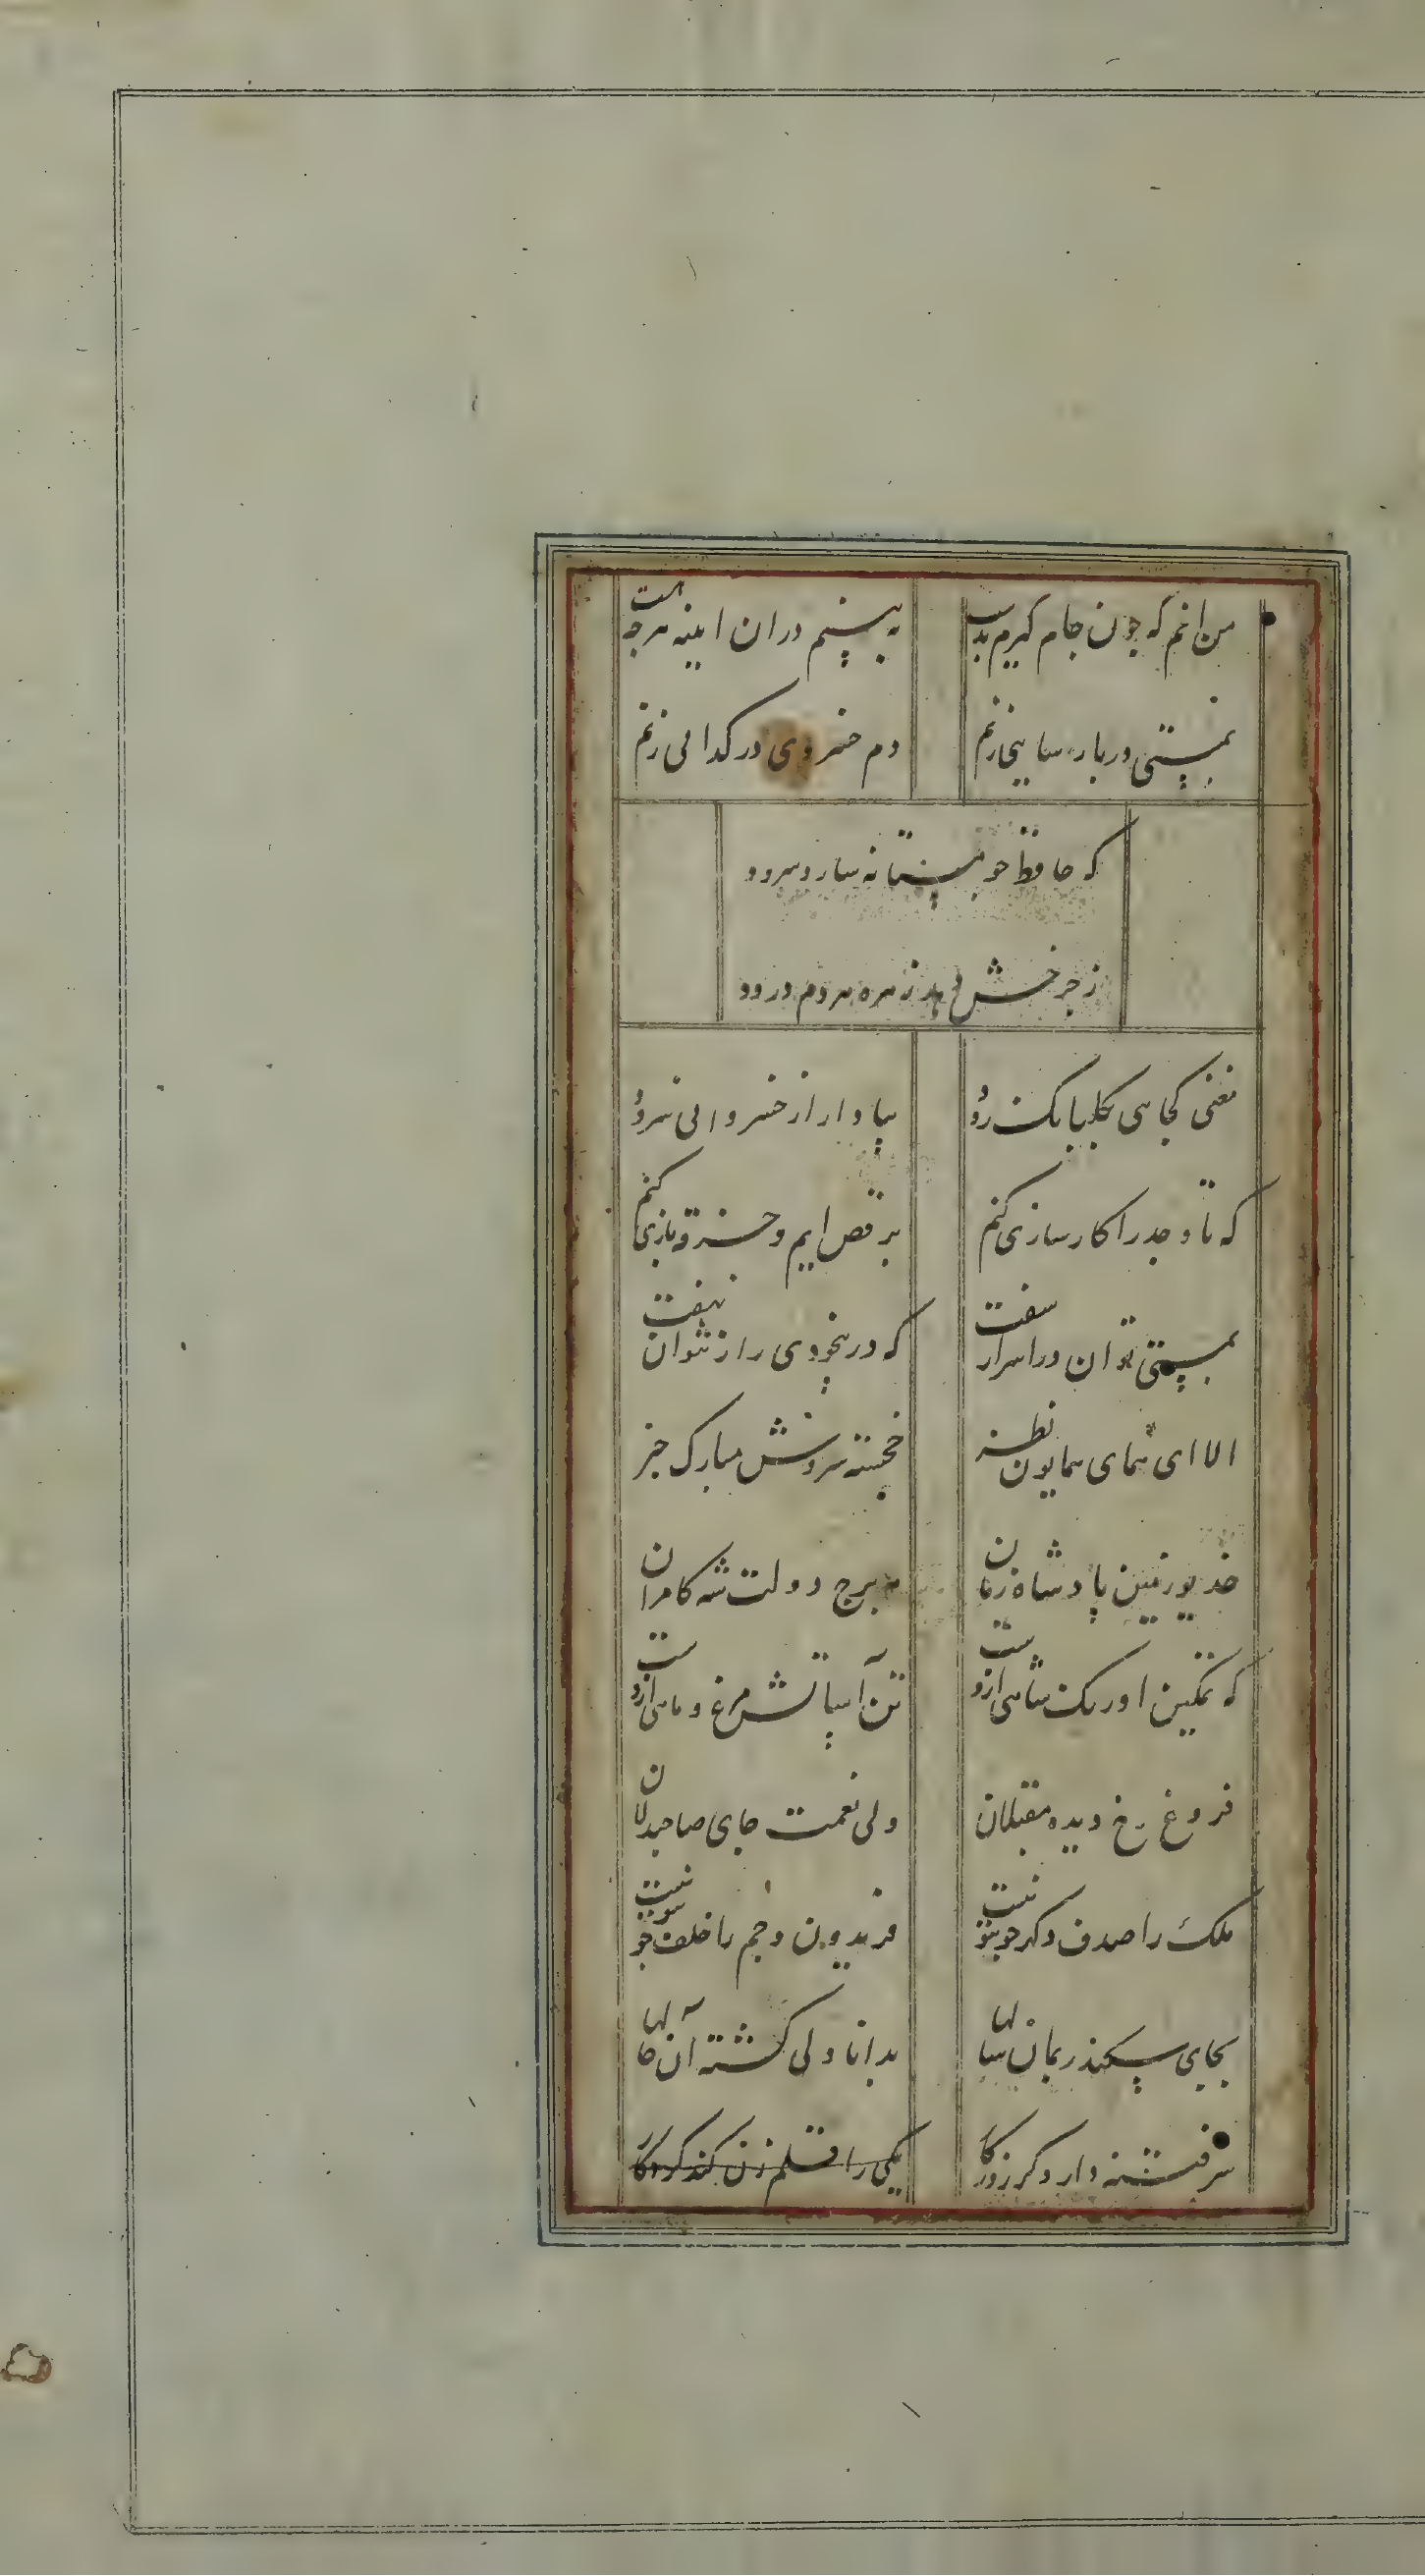 من انم که چون جام گیرم بدست
به بینم دران ایینه هرچه هست
بمستی در پارسایی زنم
دم خسروی در گدایی زنم
که حافظ چو مستانه سازد سرود
ز چرخش دهد زهره هر دم درود
مغنی کجایی بگلبانگ رود
بیاد ار از خسروانی سرود
که تا وجد را کارسازی کنم
برقص ایم و خرقه بازی کنم
بمستی توان در اسرار سفت
که در بیخودی راز نتوان نهفت
الا ای همای همایون نظر
خجسته سروش مبارک خبر
خدیو زمین پادشاه زمان
مه برج دولت شه کامران
که تمکین اورنگ شاهی ازوست
تن آسایش مرغ و ماهی ازوست
فروغ رخ دیده مقبلان
ولی نعمت جای صاحبدلان
ملک را صدف در گهر چو تو نیست
فریدون و جم را خلف چو تو نیست
بجای سکندر بمان سالها
بدانا دلی گشته آن حالها
سر فتنه دارد دگر روزگار
یکی را قلم زن کند کردگار